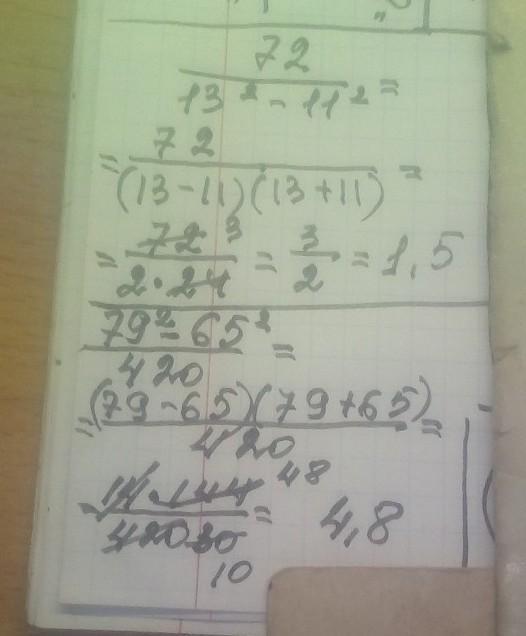 72
13² - 11² =
= 72
(13-11)(13+11) =
= 72 3 / 2·24 = 3/2 = 1,5
79² - 65²
420 =
= (79-65)(79+65)
420 =
= 14·144 48
420 30 = 4,8
10